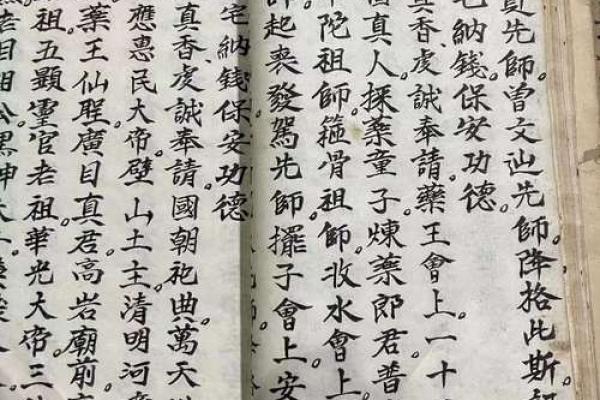 先師。曾文辿先師。降格此斯。
宅納錢。保安功德。
真香。虔誠奉請。藥王會上。一十
真人。採藥童子。煉藥郎君。普
陀祖師。箍骨祖師。收水會上。
師。起喪發駕先師。擺子會上。安
宅納錢保安功德。
真香。虔誠奉請。國朝祀典。萬天
應惠民大帝。壁山土主。清明河
藥王仙聖。廣目真君。高岩廟前
祖。五顯靈官老祖。華光大帝。三
相公。黑神